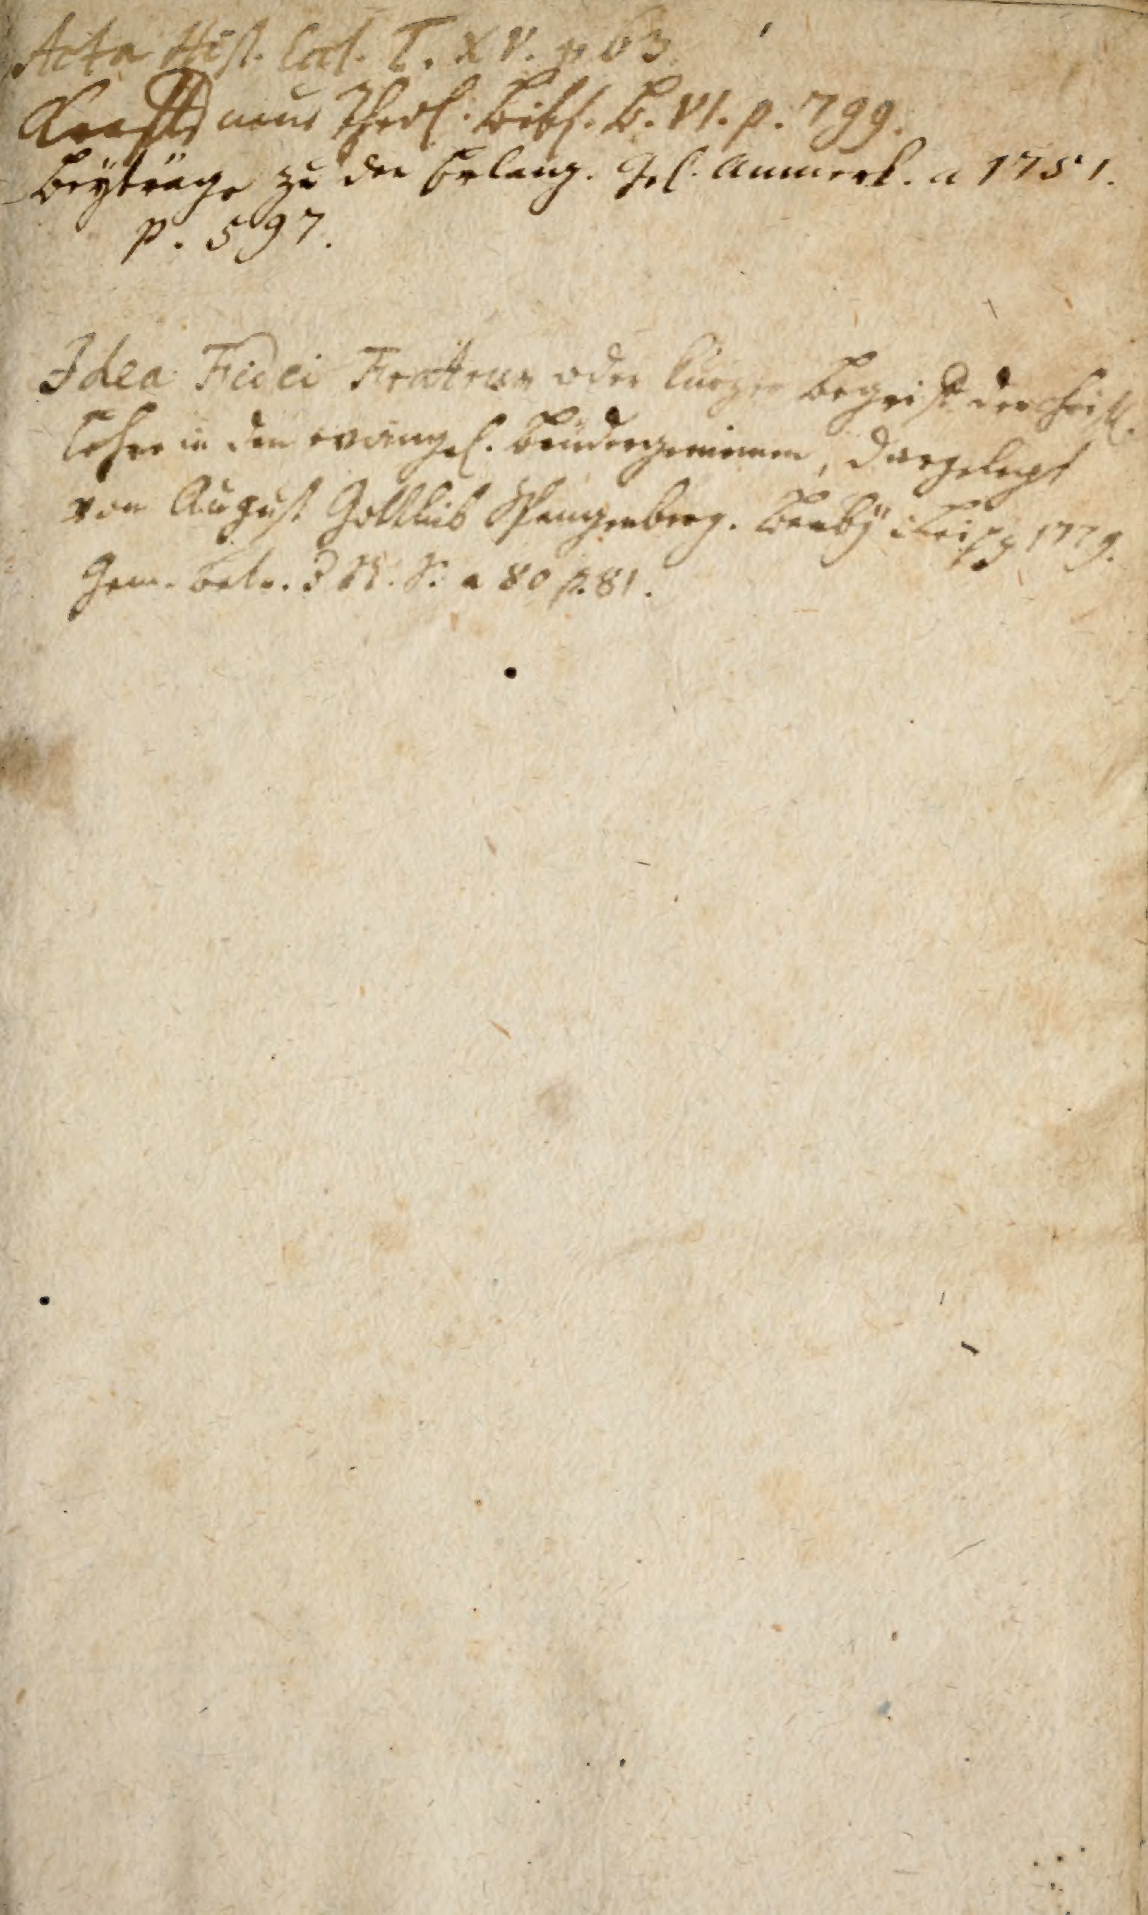 Acta Hist. Eccl. T. XV. p 63.
Krafts neue Theol. Bibl. B. VI. p. 799.
Beyträge zu den Erlang. Gel. Anmerk. a 1751.
p. 597.
Idea Fidei Fratrum oder kurzer Begriff der Christl.
Lehre in den evangel. Brüdergemeinen, dargelegt
von August Gottlieb Spangenberg. Barby Leipz 1779.
a 80 p. 81.